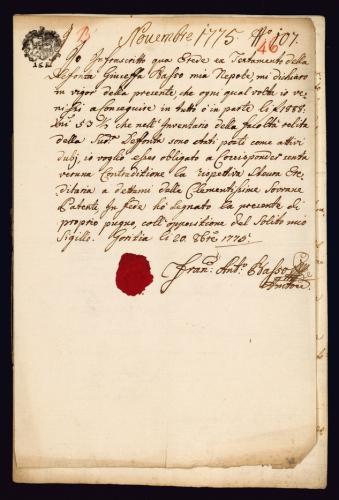 Novembre 1775 N° 107.
46
Io Infrascritto qua Erede ex Testamento della
Defonta Giuseffa Basso mia Nepote, mi dichiaro
in vigor della presente che ogni qual volta io ve-
nissi a conseguire in tutto ò in parte li f 1888.
53 che nell'Inventario della facoltà relita
della Sud.ta Defonta sono stati posti come attivi
dubj, io voglio esser obligato a Corrisponder senza
veruna Contradditione la rispettiva Steura Ere-
ditaria a dettami della Clementissime Sovrane
Patenti. In fede hò segnato la presente di
proprio pugno, coll'apposizione del Solito mio
Sigillo. Gorizia li 20. 1775.
Fran.co Ant.o Basso